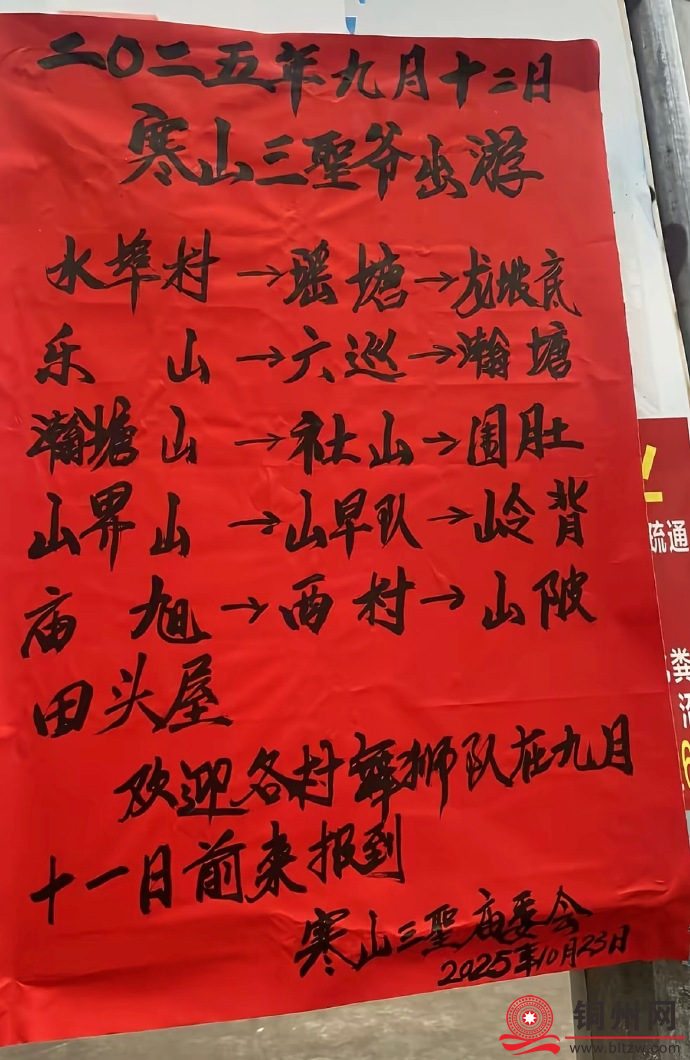 二〇二五年九月十二日
寒山三聖爷出游
水埠村→瑶塘→龙坡底
乐山→六巡→瀚塘
瀚塘山→社山→围肚
山界山→山早队→岭背
庙旭→西村→山陂
田头屋
欢迎各村舞狮队在九月
十一日前来报到
寒山三聖庙委会
2025年10月23日
疏通
粪
铜州网
www.bltzw.com